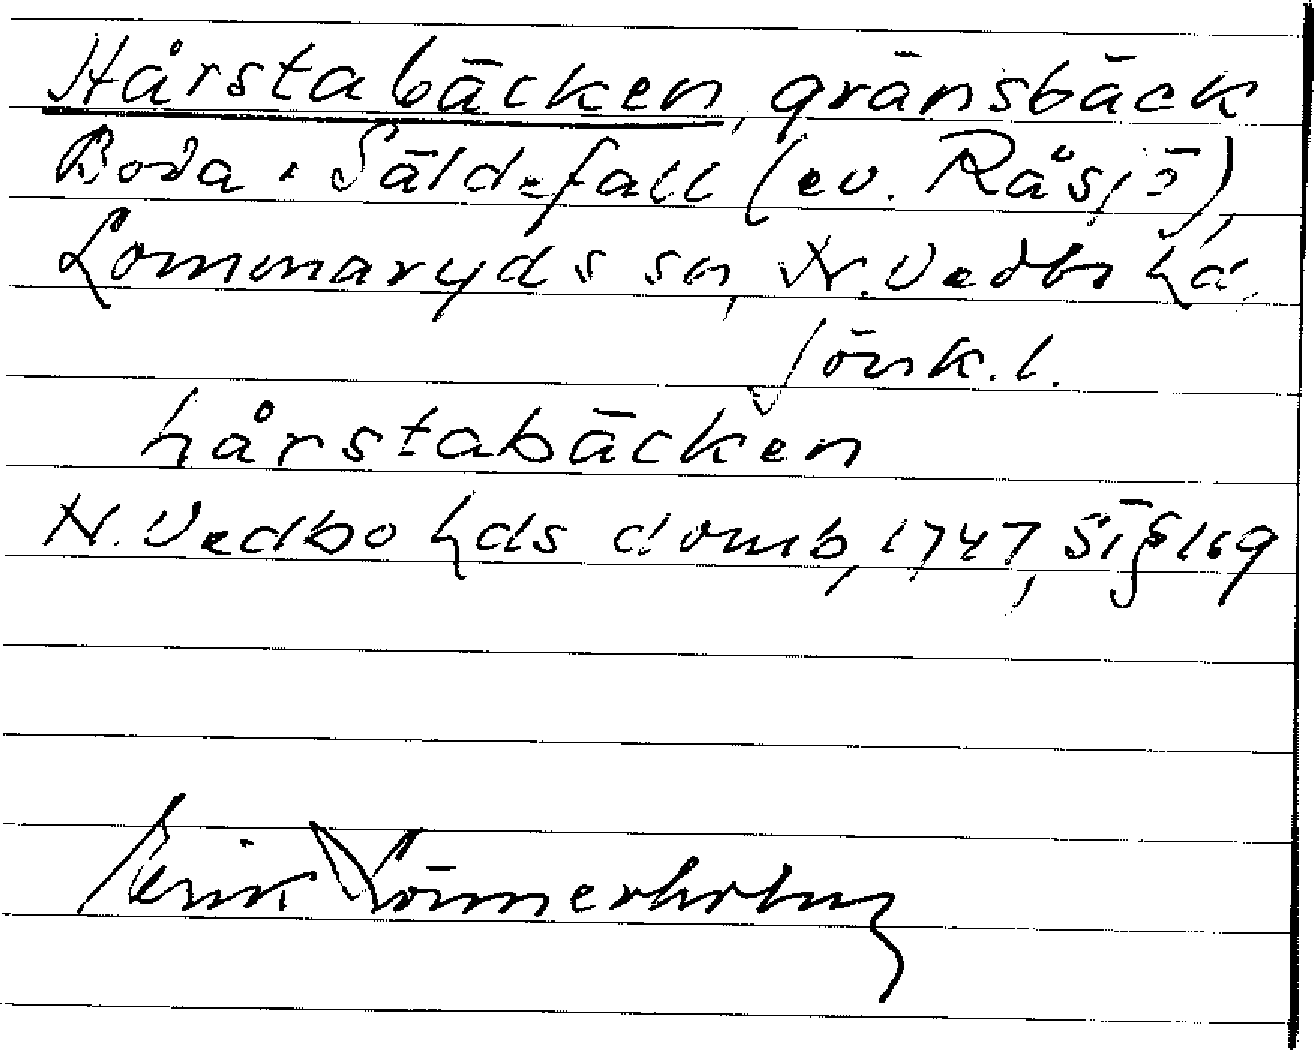 Hårstabäcken, gränsbäck
Boda • Säldefall (ev. Råsjö),
Lommaryds sn, N. Vedbo hd,
Jönk. l.
hårstabäcken
N. Vedbo hds domb, 1747, § 169
Erik